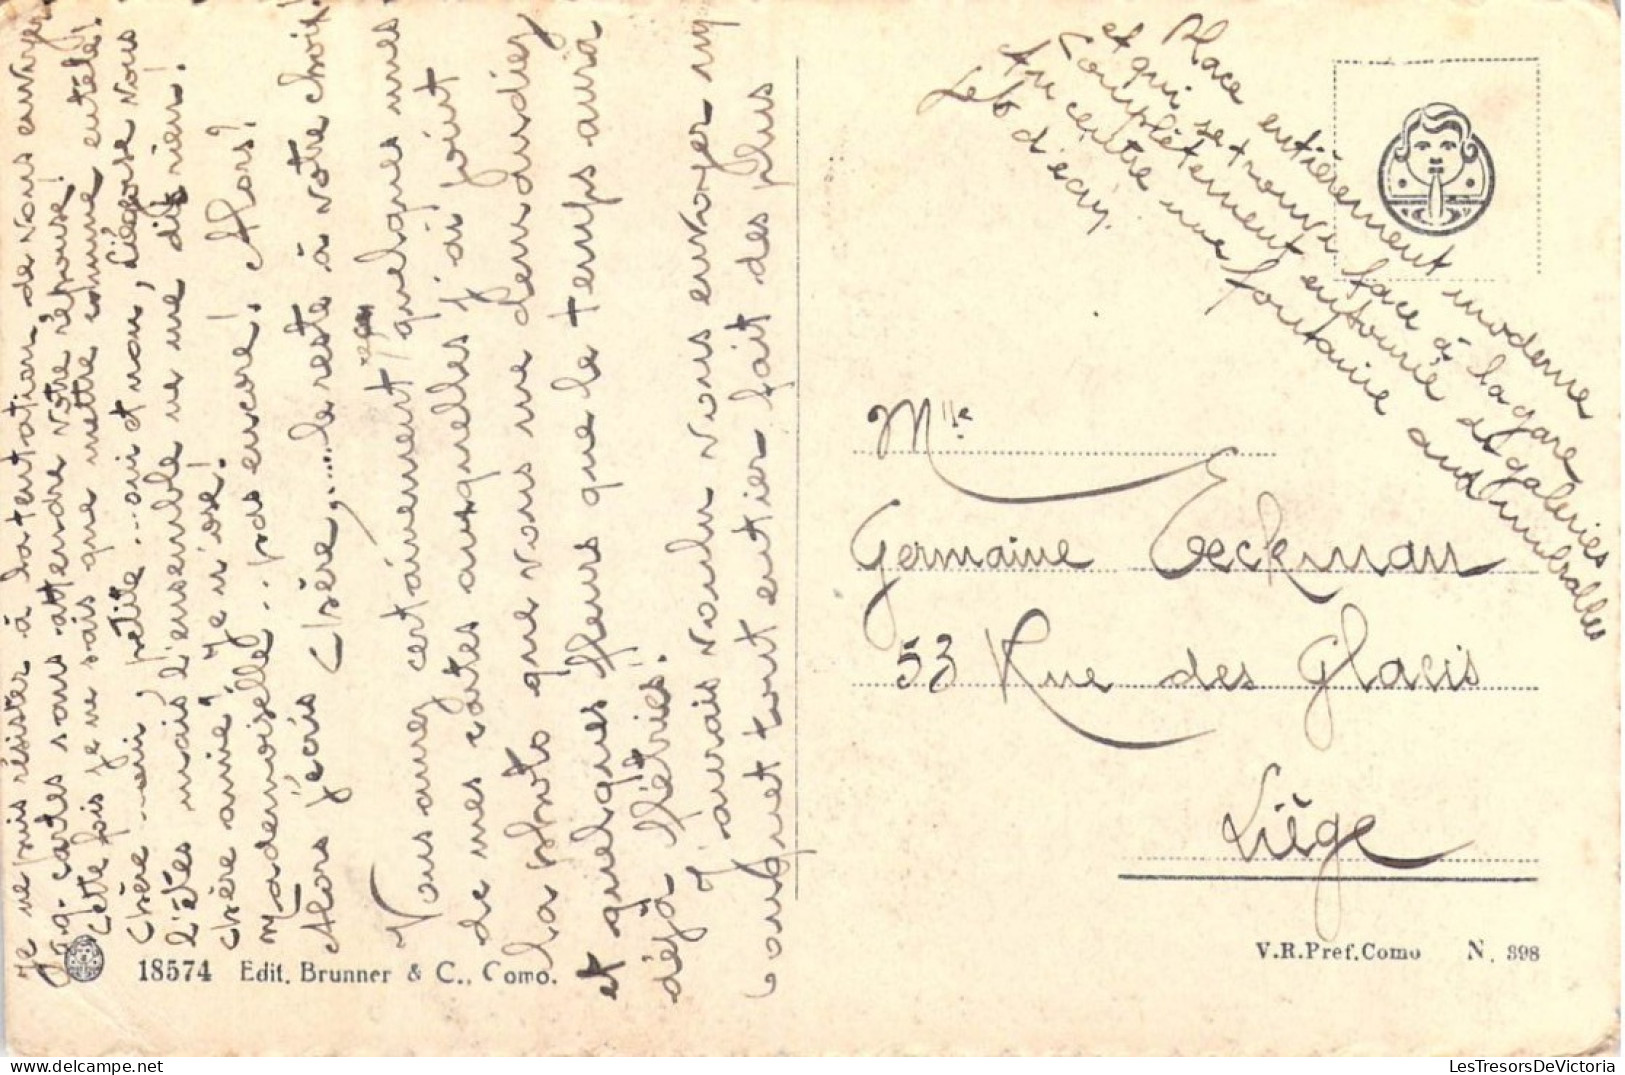 Je ne puis résister à la tentation de vous envoyer
qq. cartes sans attendre votre réponse!
Cette fois je ne sais que mettre comme entête!
Chère amie, petite... oui et non, d'épouse vous
l'êtes mais l'ensemble ne me dit rien!
Chère amie? Je n'ose!
Mademoiselle... pas encore! Alors?
Alors j'écris Chère,.... le reste à votre choix!
Vous aurez certainement reçu quelques unes
de mes cartes auxquelles j'ai joint
la photo que vous me demandiez
et quelques fleurs que le temps aura
déjà flétries!
J'aurais voulu vous envoyer un
bouquet tout entier fait des plus
Place entièrement moderne
et qui se trouve face à la gare
Complètement entourée de galeries
Au centre une fontaine aux
Jets d'eau.
Mlle
Germaine Eeckman
53 Rue des Glacis
Liège
18574 Edit. Brunner & C., Como.
V.R.Pref.Como N. 398
LesTresorsDeVictoria